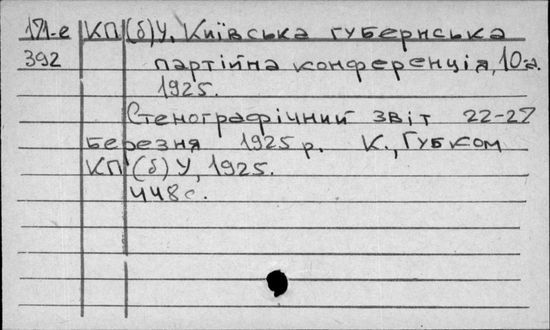 171-е КП(б)У. Київська губернська
392 партійна конференція, 10-а.
1925.
Стенографічний звіт 22-27
березня 1925 р. К., Губком
КП(б)У, 1925.
448 с.